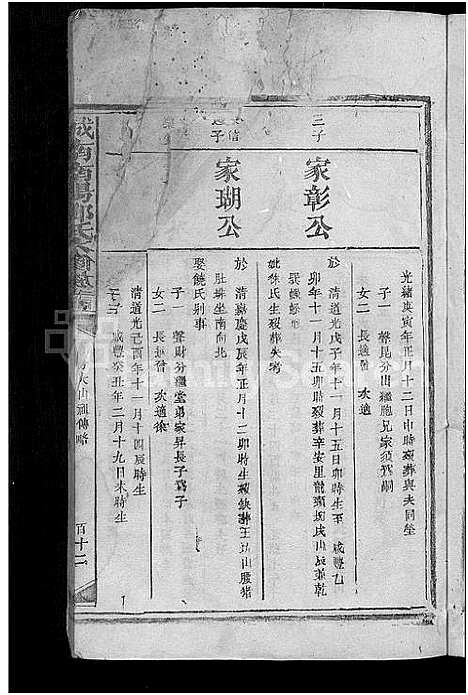 光緒庚寅年正月十二日申時殁葬與夫同塋
子一 聲昆分山繼胞兄家須為嗣
女二 長適曾 次適
三子
家彰公
於 清道光戊子年十一月十五日卯時生至 咸豐乙
卯年十一月十五卯時殁葬辛安里龍頭
山兼乾
巽
妣朱氏生殁葬失考
家瑚公
於 清嘉慶戊辰年正月十二卯時生殁缺葬王
山腰豬
肚
坐南向北
娶饒氏别事
子一 聲財分繼堂弟家昇長子為子
女二 長適曾 次適徐
清道光己酉年十一月十四辰時生
子三 咸豐癸丑年二月十九日未時生
城南南陽鄧氏八修族
大山祖傳略
百十二